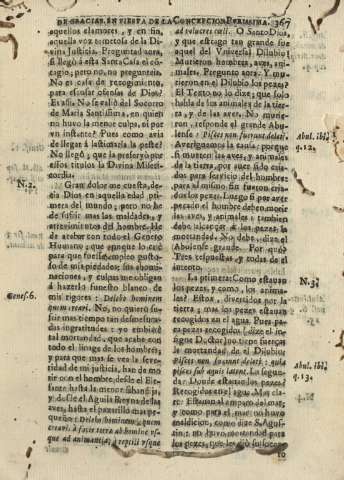 DE GRACIAS, EN FIESTA DE LA CONCEPCION PURISSIMA. 367
aquellos clamores, y en fin,
aquella voz temerosa de la Di-
vina Justicia. Preguntad aora,
si llegò à esta Santa Casa el có-
tagio, pero no, no pregunteis.
No es casa de recogimiento,
para escusar ofensas de Dios?
Es assi. No se valiò del Socorro
de Maria Santissima, en quien
no huvo la menor culpa, ni por
vn instante? Pues como avia
de llegar à lastimarla la peste?
No llegò, que la preservò por
essos titulos la Divina Miseri-
cordia.
N.2.
Gran dolor me cuesta, de-
zia Dios en aquella edad pri-
mera del mundo, pero no he
de sufrir mas las maldades, y
atrevimientos del hombre. He
de acabar con todo el Genero
Humano, que aunque lo criè
para que fuesse empleo gusto-
so de mis piedades; sus abomi-
naciones, y culpas me obligan
à hazerlo funesto blanco de
mis rigores: Delebo hominem
Genes. 6.
quem creavi. No, no quiero su-
frir mas tiempo tan desmesura-
das ingratitudes: yo embiarè
tal mortandad, que acabe con
todo el linage de los hombres;
y para que mas se vea la seve-
ridad de mi justicia, han de mo-
rir con el hombre, desde el Ele-
fante hasta la menor sabandija,
y desde el Aguila Reyna de las
aves, hasta el paxarillo mas pe-
queño: Delebo hominem, quem
creavi, à facie terræ ab homine vs-
que ad animantia, à reptili vsque
ad volucres cœli. O Santo Dios,
y que estrago tan grande fue
aquel del Vniversal Diluvio!
Murieron hombres, aves, ani-
males. Pregunto aora: Y mu-
rieron en el Diluvio los pezes?
El Texto no lo dize, que solo
habla de los animales de la tier-
ra, y de las aves. No murie-
ron, responde el grande Abu-
lense: Pisces non fuerunt deleti.
Abul. ibi.
q. 12.
Averiguemos la causa: porque
si mueren las aves, y animales
de la tierra, por aver sido cria-
dos para servicio del hombre;
para el mismo fin fueron cria-
dos los pezes. Luego si por aver
pecado el hombre deben morir
las aves, y animales; tambien
debe alcançar à los pezes la
mortandad. No debe, dize el
Abulense grande. Por què?
Tres respuestas, y todas de el
intento.
N. 3.
La primera: Como estavan
los pezes, y como, los anima-
les? Estos, divertidos por la
tierra; mas los pezes estavan
recogidos en el agua. Pues pa-
ra pezes recogidos (dize el in-
signe Doctor) no tiene fuerças
la mortandad de el Diluvio:
Abul. ibi.
q. 13.
La segun-
da: Donde estavan los pezes?
Recogidos en el agua. Mas cla-
ro: Estavan al amparo del mar;
y como para el mar no huvo
maldicion, como dize S. Agus-
tin; no huvo mortandad para
to